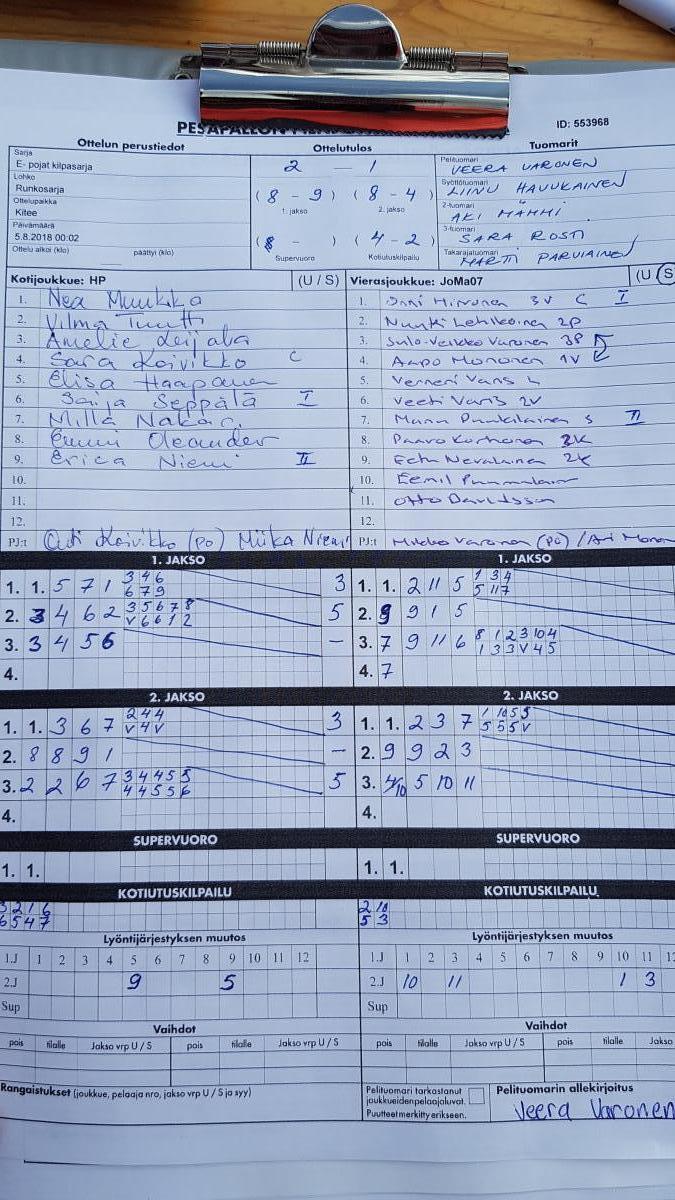 ID: 553968
Ottelun perustiedot
Sarja
E- pojat kilpasarja
Lohko
Runkosarja
Ottelupaikka
Kitee
Päivämäärä
5.8.2018 00:02
Ottelu alkoi (klo) päättyi (klo)
Ottelutulos
2 - 1
(8 - 9) (8 - 4)
1. jakso 2. jakso
( - ) (4 - 2)
Supervuoro Kotiutuskilpailu
Tuomarit
Pelituomari
VEERA VARONEN
Syöttötuomari
LIINU HAUUKAINEN
2-tuomari
AKI
3-tuomari
SARA ROSTI
Takarajatuomari
MARTTI PARVIAINEN
Kotijoukkue: HP (U / S)
1. Nea Muukika
2. Vilma
3. Amelie
4. Sara Koivikko C
5. Elisa Haapanen
6. Saija Seppälä I
7. Milla
8. Emmi Oleander
9. Erica Niemi II
10.
11.
12.
PJ:t Outi Koivikko (PO) Miika Niemi
Vierasjoukkue: JoMa07 (U / S
1. Onni Hirvonen 3V C I
2. 2P
3. Sulo-Veikko Varonen 3P
4. Aapo Mononen 1V
5. Verneri Varis L
6. Veeti Varis 2V
7. Manu Puukilainen S II
8. Paavo Korhonen 3K
9. Eetu Nevalainen 2K
10. Eemil
11. Otto Davidsson
12.
PJ:t Mikko Varonen (PO) / Ari Monon
1. JAKSO
1. 1. 5 7 1 3 4 6 3
6 7 9
2. 3 4 6 2 3 5 6 7 8 5
V 6 6 1 2
3. 3 4 5 6 -
4.
1. JAKSO
1. 1. 2 11 5 1 3 4
5 11 7
2. 9 9 1 5
3. 7 9 11 6 8 1 2 3 10 4
1 3 3 V 4 5
4. 7
2. JAKSO
1. 1. 3 6 7 2 4 4 3
V 4 V
2. 8 8 9 1 -
3. 2 2 6 7 3 4 4 5 5 5
4 4 5 5 6
4.
2. JAKSO
1. 1. 2 3 7 1 10 5 5
5 5 5 V
2. 9 9 2 3
3. 4/10 5 10 11
4.
SUPERVUORO
1. 1.
SUPERVUORO
1. 1.
KOTIUTUSKILPAILU
3 2 1 6
6 5 4 7
KOTIUTUSKILPAILU
2 10
5 3
Lyöntijärjestyksen muutos
1.J 1 2 3 4 5 6 7 8 9 10 11 12
2.J 9 5
Sup
Lyöntijärjestyksen muutos
1.J 1 2 3 4 5 6 7 8 9 10 11 12
2.J 10 11 1 3
Sup
Vaihdot
pois tilalle Jakso vrp U / S pois tilalle Jakso vrp U / S
Vaihdot
pois tilalle Jakso vrp U / S pois tilalle Jakso
Rangaistukset (joukkue, pelaaja nro, jakso vrp U / S ja syy)
Pelituomari tarkastanut
joukkueiden pelaajaluvat.
Puutteet merkitty erikseen.
Pelituomarin allekirjoitus
Veera Varonen